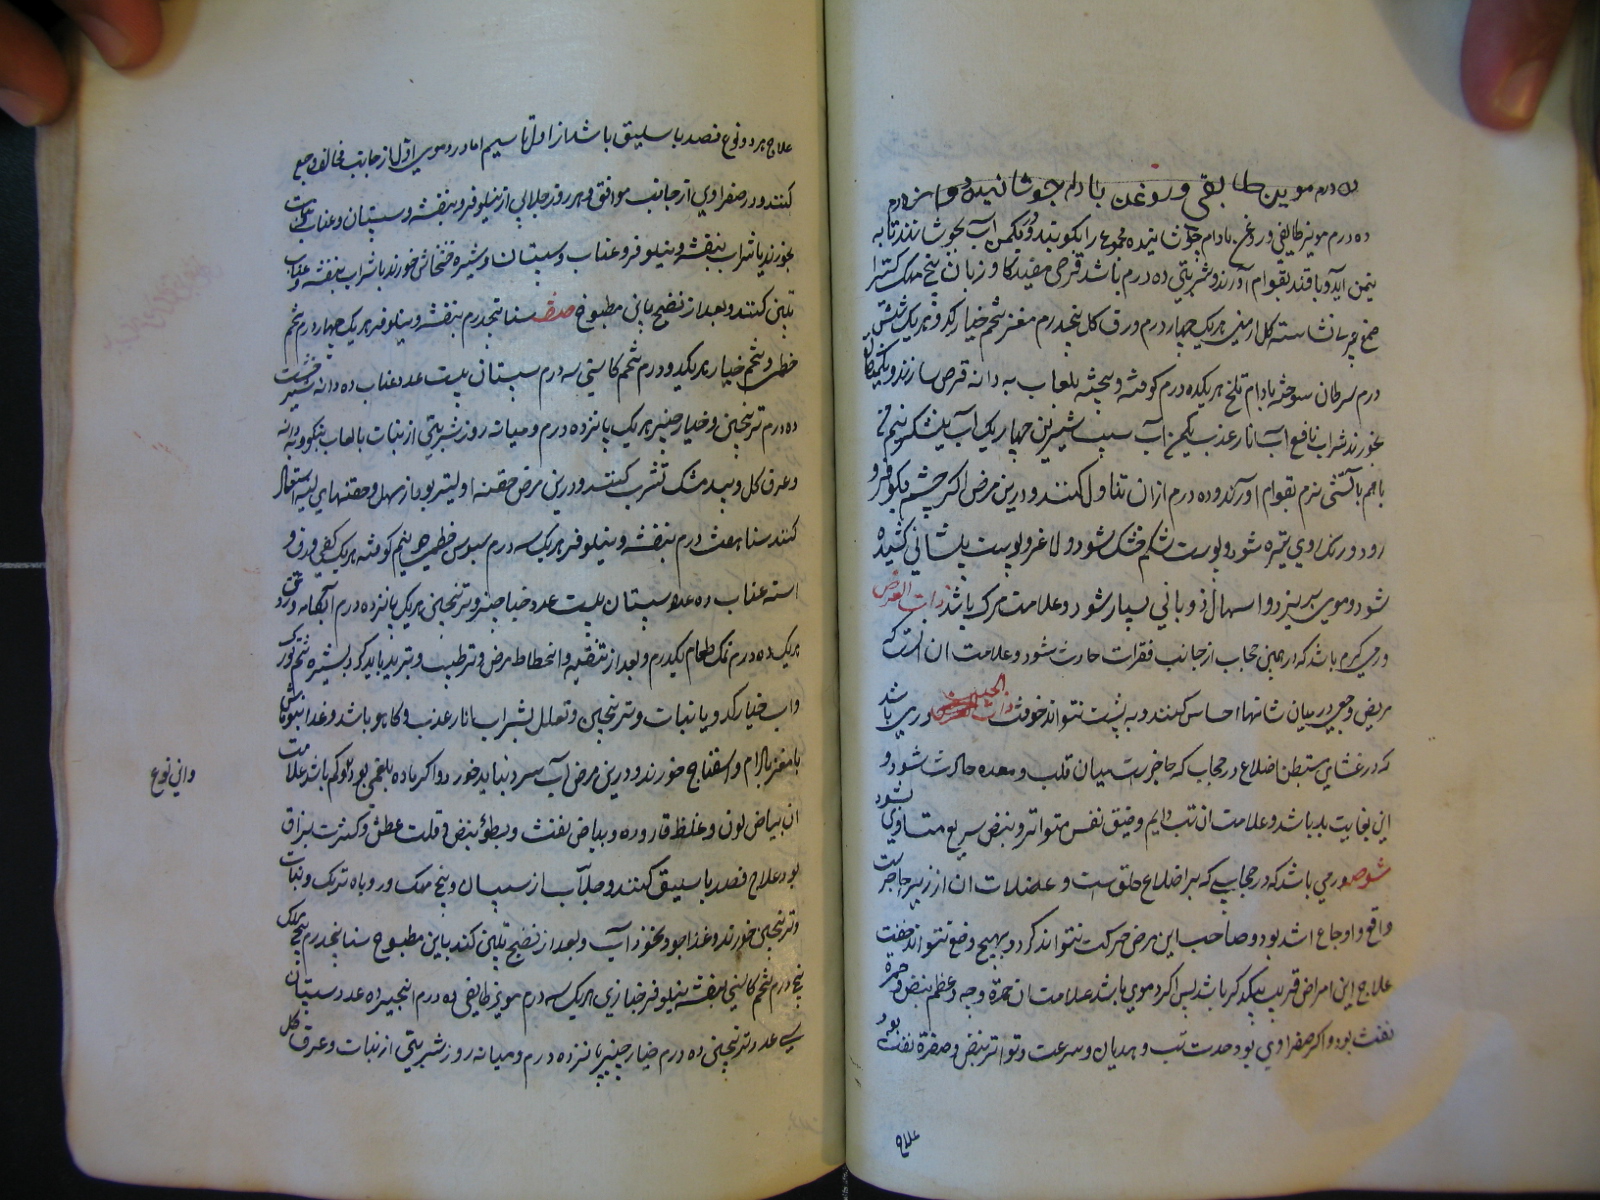 ده درم مویز طایفی و روغن بادام جوشانیده
ده درم مویز طایفی و روغن بادام جوشانیده مجموع را بکوبند و در یکمن آب بجوشانند تا به
نیمن آید و با قند بقوام آورند و شربتی ده درم باشد قرص مفید کاو زبان پنج مهک کتیرا
صمغ عربی نشاسته کل ارمنی هر یک چهار درم ورق کل پنجدرم مغز تخم خیار کدو هر یک شش
درم سرطان سوخته بادام تلخ هر یک ده درم کوفته و بیخته بلعاب به دانه قرص سازند و
بخورند شراب نافع آب انار عذب یکمن آب سیب شیرین چهار یک آب نیشکر نیم من
با هم بآتش نرم بقوام آورند و ده درم ازان تناول کنند و درین مرض اکر چشم بکو فرو
رود و رنک روی تیره شود و پوست شکم خشک شود و لاغر و پوست پیشانی کشیده
شود و موی بریزد و اسهال ذوبانی بسیار شود و علامت مرک باشد ذات العرض
ورمی کرم باشد که از همین حجاب از جانب فقرات حادث شود و علامت ان انست که
مریض وجعی در میان شانها احساس کنند و به پشت نتواند خوفت ذات الجنب ورمی باشد
که در غشای مستبطن اضلاع در حجاب که حاجز ست میان قلب و معده حادث شود و
این بغایت بد باشد و علامت ان تب دایم و ضیق نفس متواتر و نبض سریع متساوی بود
شوصه ورمی باشد که در حجابی که بر اضلاع خلق ست و عضلات ان از زیر حاجز ست
واقع و اوجاع اشد بود و صاحب این مرض حرکت نتواند کرد و بهیچ وضع نتواند خفت
علاج این امراض قریب بیکدیکر باشد پس اکر دموی باشد علامت ان حمرة وجه و عظم نبض و حمرة
نفث بود و اکر صفراوی بود حدت تب و هدیان و سرعت و تواتر نبض و صفرة نفث بود
علاج
علاج هر دو نوع فصد باسلیق باشد از اول تا سیم اما در دموی اول از جانب مخالف وجع
کنند و در صفراوی از جانب موافق و هر روز جلابی از نیلوفر و بنفشه و سپستان و عناب و نبات
بخورند یا شراب بنفشه و نیلوفر و عناب و سپستان و شیره خشخاش خورند با شراب بنفشه و عناب
تلیین کنند و بعد از نضج باین مطبوخ صفت سنا پنجدرم بنفشه و نیلوفر هر یک چهار درم تخم
خطمی و تخم خیار هر یک دو درم تخم کاسنی سه درم سپستان بیست عدد عناب ده دانه شیرخشت
ده درم ترنجبین و خیار چنبر هر یک پانزده درم و میانه روز شربتی از نبات با لعاب بنکو و به دانه
و عرق کل و بیدمشک تشرب کنند و درین مرض حقنه اولیتر بود از مسهل و حقنهای لینه استعمال
کنند سنا هفت درم بنفشه و نیلوفر هر یک سه درم سبوس خطمی جو نیم کوفته هر یک کفی ورق و
استه عناب ده عدد سپستان بیست عدد خیار چنبر و ترنجبین هر یک پانزده درم آبکامه و
هر یک ده درم نمک طعام یکدرم و بعد از تنقیه و انحطاط مرض و ترطیب و تبرید باید کرد بشیره تخم تورک
و اب خیار کدو یا نبات و ترنجبین و تعلل بشراب انار عذب و کاهو باشد و غدا
با مغز بادام و اسفناج خورند و درین مرض آب سرد نباید خورد و اکر ماده بلغمی بود و کم باشد علامت
ان بیاض لون و غلظ قاروره و بیاض نفث و بطؤ نبض و قلت عطش و کثرت بزاق
بود علاج فصد باسلیق کنند و جلاب از سپسان و بیخ مهک و روباه تربک و نبات
و ترنجبین خورند و غذا جو و نخود آب و بعد از نضج تلیین کند باین مطبوخ سنا پنجدرم بیخ مهک
پنج درم تخم کاسنی بنفشه نیلوفر خبازی هر یک سه درم مویز طایفی ده درم انجیر ده عدد سپستان
سی عدد ترنجبین ده درم خیار چنبر پانزده درم و میانه روز شربتی از نبات و عرق کل
واین نوع